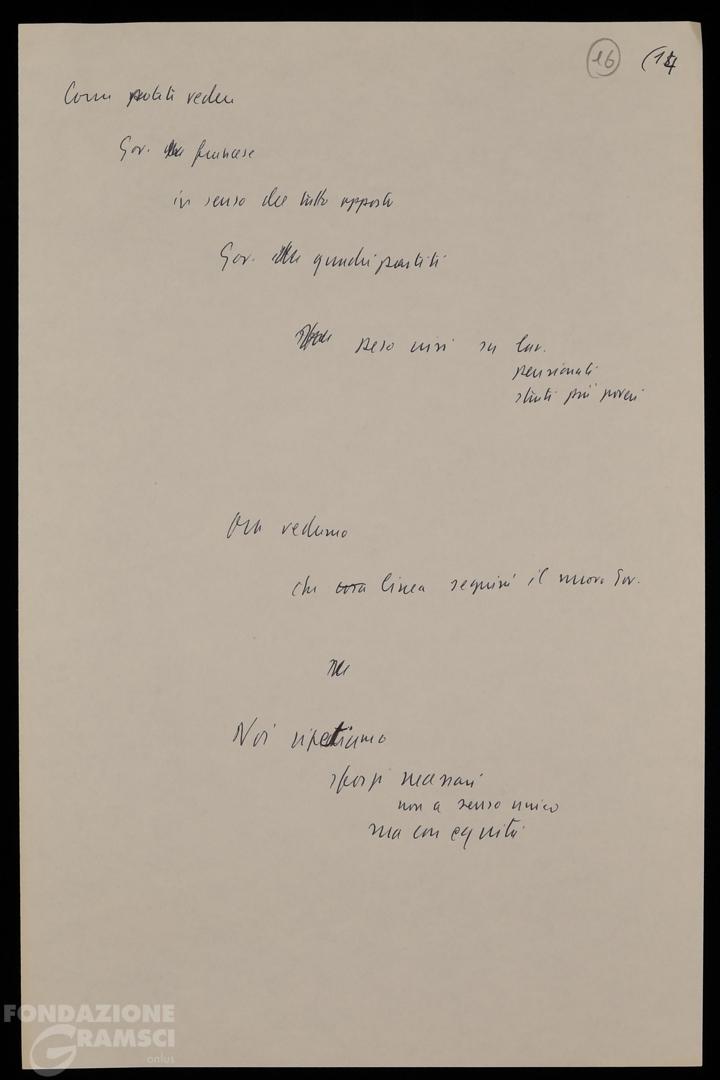 16 (14
Come potete vedere
Gov. francese
in senso del tutto opposto
Gov. quadripartiti
peso crisi su lav.
pensionati
strati più poveri
Ora vedremo
che cosa linea seguirà il nuovo Gov.
Noi ripetiamo
sforzi necessari
non a senso unico
ma con equità
FONDAZIONE
GRAMSCI
onlus